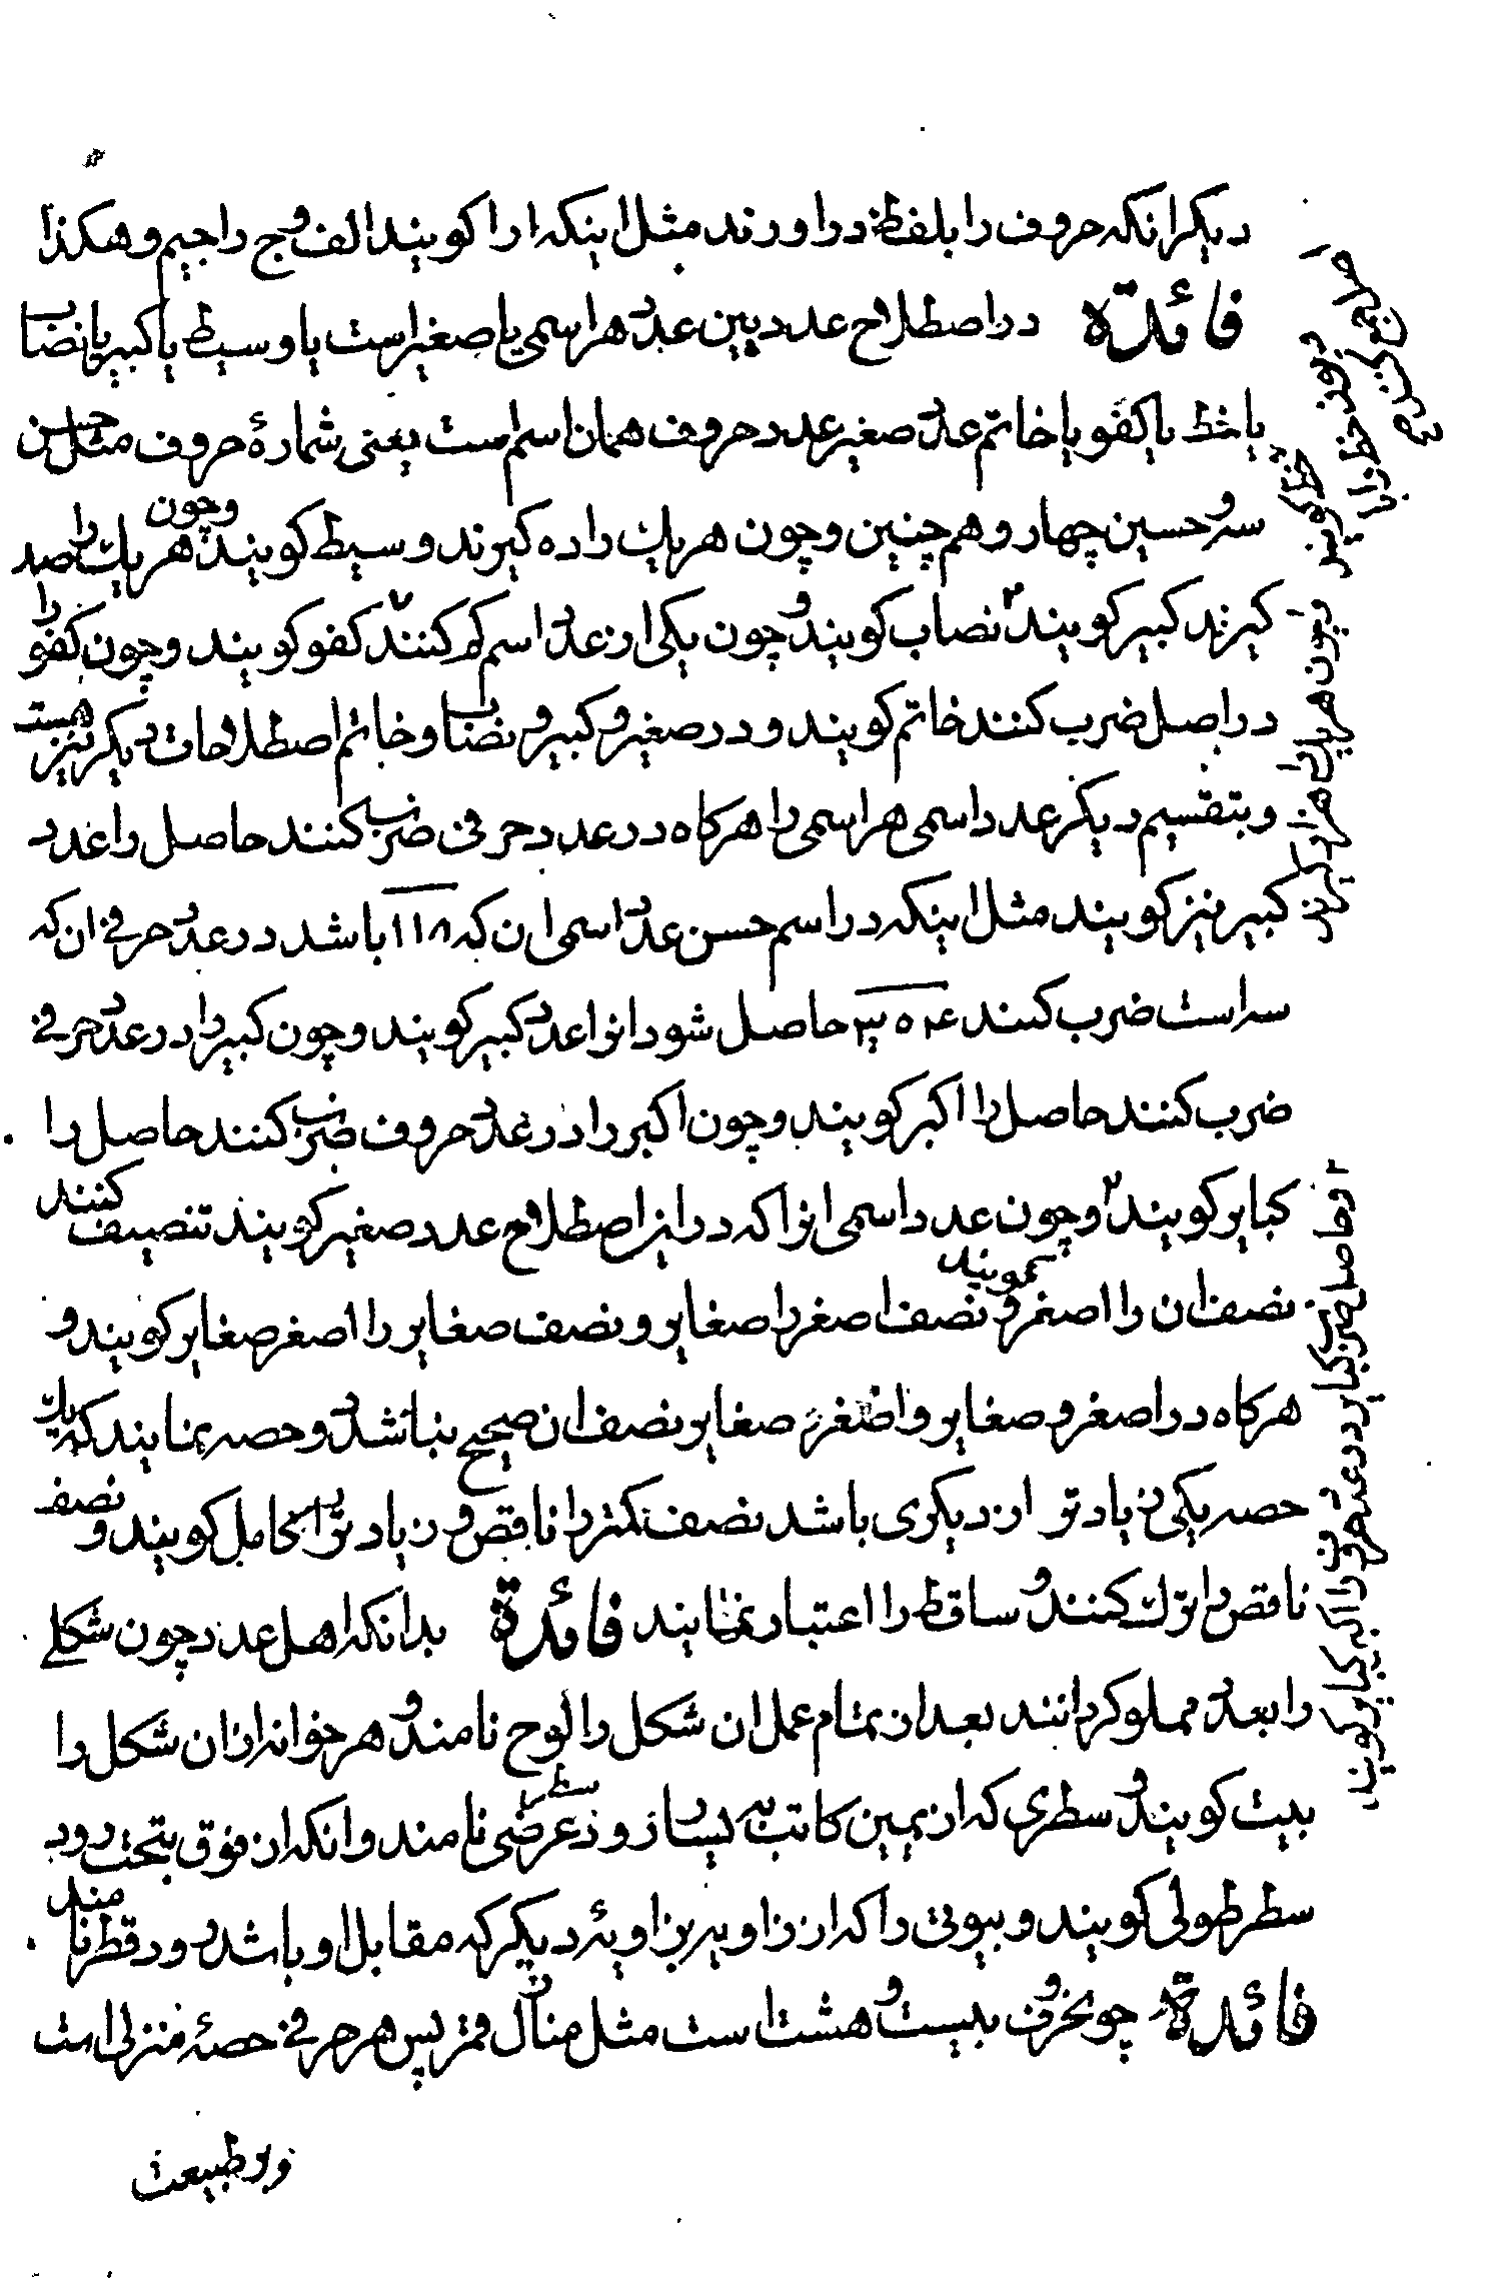 دیکر انکه حروف را بلفظ در اورند مثل اینکه ا را کویند الف و ج را جیم و هکذا
فائدة در اصطلاح عددیین عدد هر اسمی یا صغیر است یا وسیط یا کبیر یا نصاب
یا خط یا کفو یا خاتم عدد صغیر عدد حروف همان اسم است یعنی شمارهٔ حروف مثل حسن
سه و حسین چهار و هم چنین و چون هر یك را ده کیرند وسیط کویند و چون هر یك را صد
کیرند کبیر کویند ۲ نصاب کویند و چون یکی از عدد اسم کم کنند ۷ کفو کویند و چون کفو را
در اصل ضرب کنند خاتم کویند و در صغیر و کبیر و نصاب و خاتم اصطلاحات دیکر نیز هست
و بتقسیم دیکر عدد اسمی هر اسمی را هر کاه در عدد حرفی ضرب کنند حاصل را عدد
کبیر نیز کویند مثل اینکه در اسم حسن عدد اسمی ان که ۱۱۸ باشد در عدد حرفی ان که
سه است ضرب کنند ۳۵۴ حاصل شود انرا عدد کبیر کویند و چون کبیر را در عدد حرفی
ضرب کنند حاصل را اکبر کویند و چون اکبر را در عدد حروف ضرب کنند حاصل را
کبایر کویند ۲ و چون عدد اسمی انرا که در این اصطلاح عدد صغیر کویند تنصیف کنند
نصف ان را اصغر کویند و نصف اصغر را صغایر و نصف صغایر را اصغر صغایر کویند و
هر کاه در اصغر و صغایر و اصغر صغایر نصف ان صحیح نباشد دو حصه نمایند که یك
حصه یکی زیادتر از دیکری باشد نصف کمتر را ناقص و زیادتر را کامل کویند و نصف
ناقص را ترك کنند و ساقط را اعتبار ننمایند فائدة بدانکه اهل عدد چون شکلی
را بعدد مملو کردانند بعد از تمام عمل ان شکل را لوح نامند و هر خوانه از ان شکل را
بیت کویند و سطری که از یمین کاتب به یسار رود سطر عرضی نامند و انکه از فوق بتحت رود
سطر طولی کویند و بیوتی را که از زاویه بزاویهٔ دیکر که مقابل او باشد رود قطر نامند
فائدة چون حروف بیست و هشت است مثل منازل قمر پس هر حرفی حصهٔ منزلی است
و بر طبیعت
چون هر یك را هزار کیرند
خط کویند
و چون خط را با
۲ و حاصل ضرب کبایر در عدد حرفی را اکبر کبایر کویند